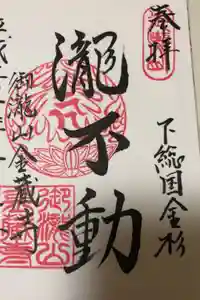 奉拝
下総国金杉
瀧不動
御瀧山金蔵寺
平成